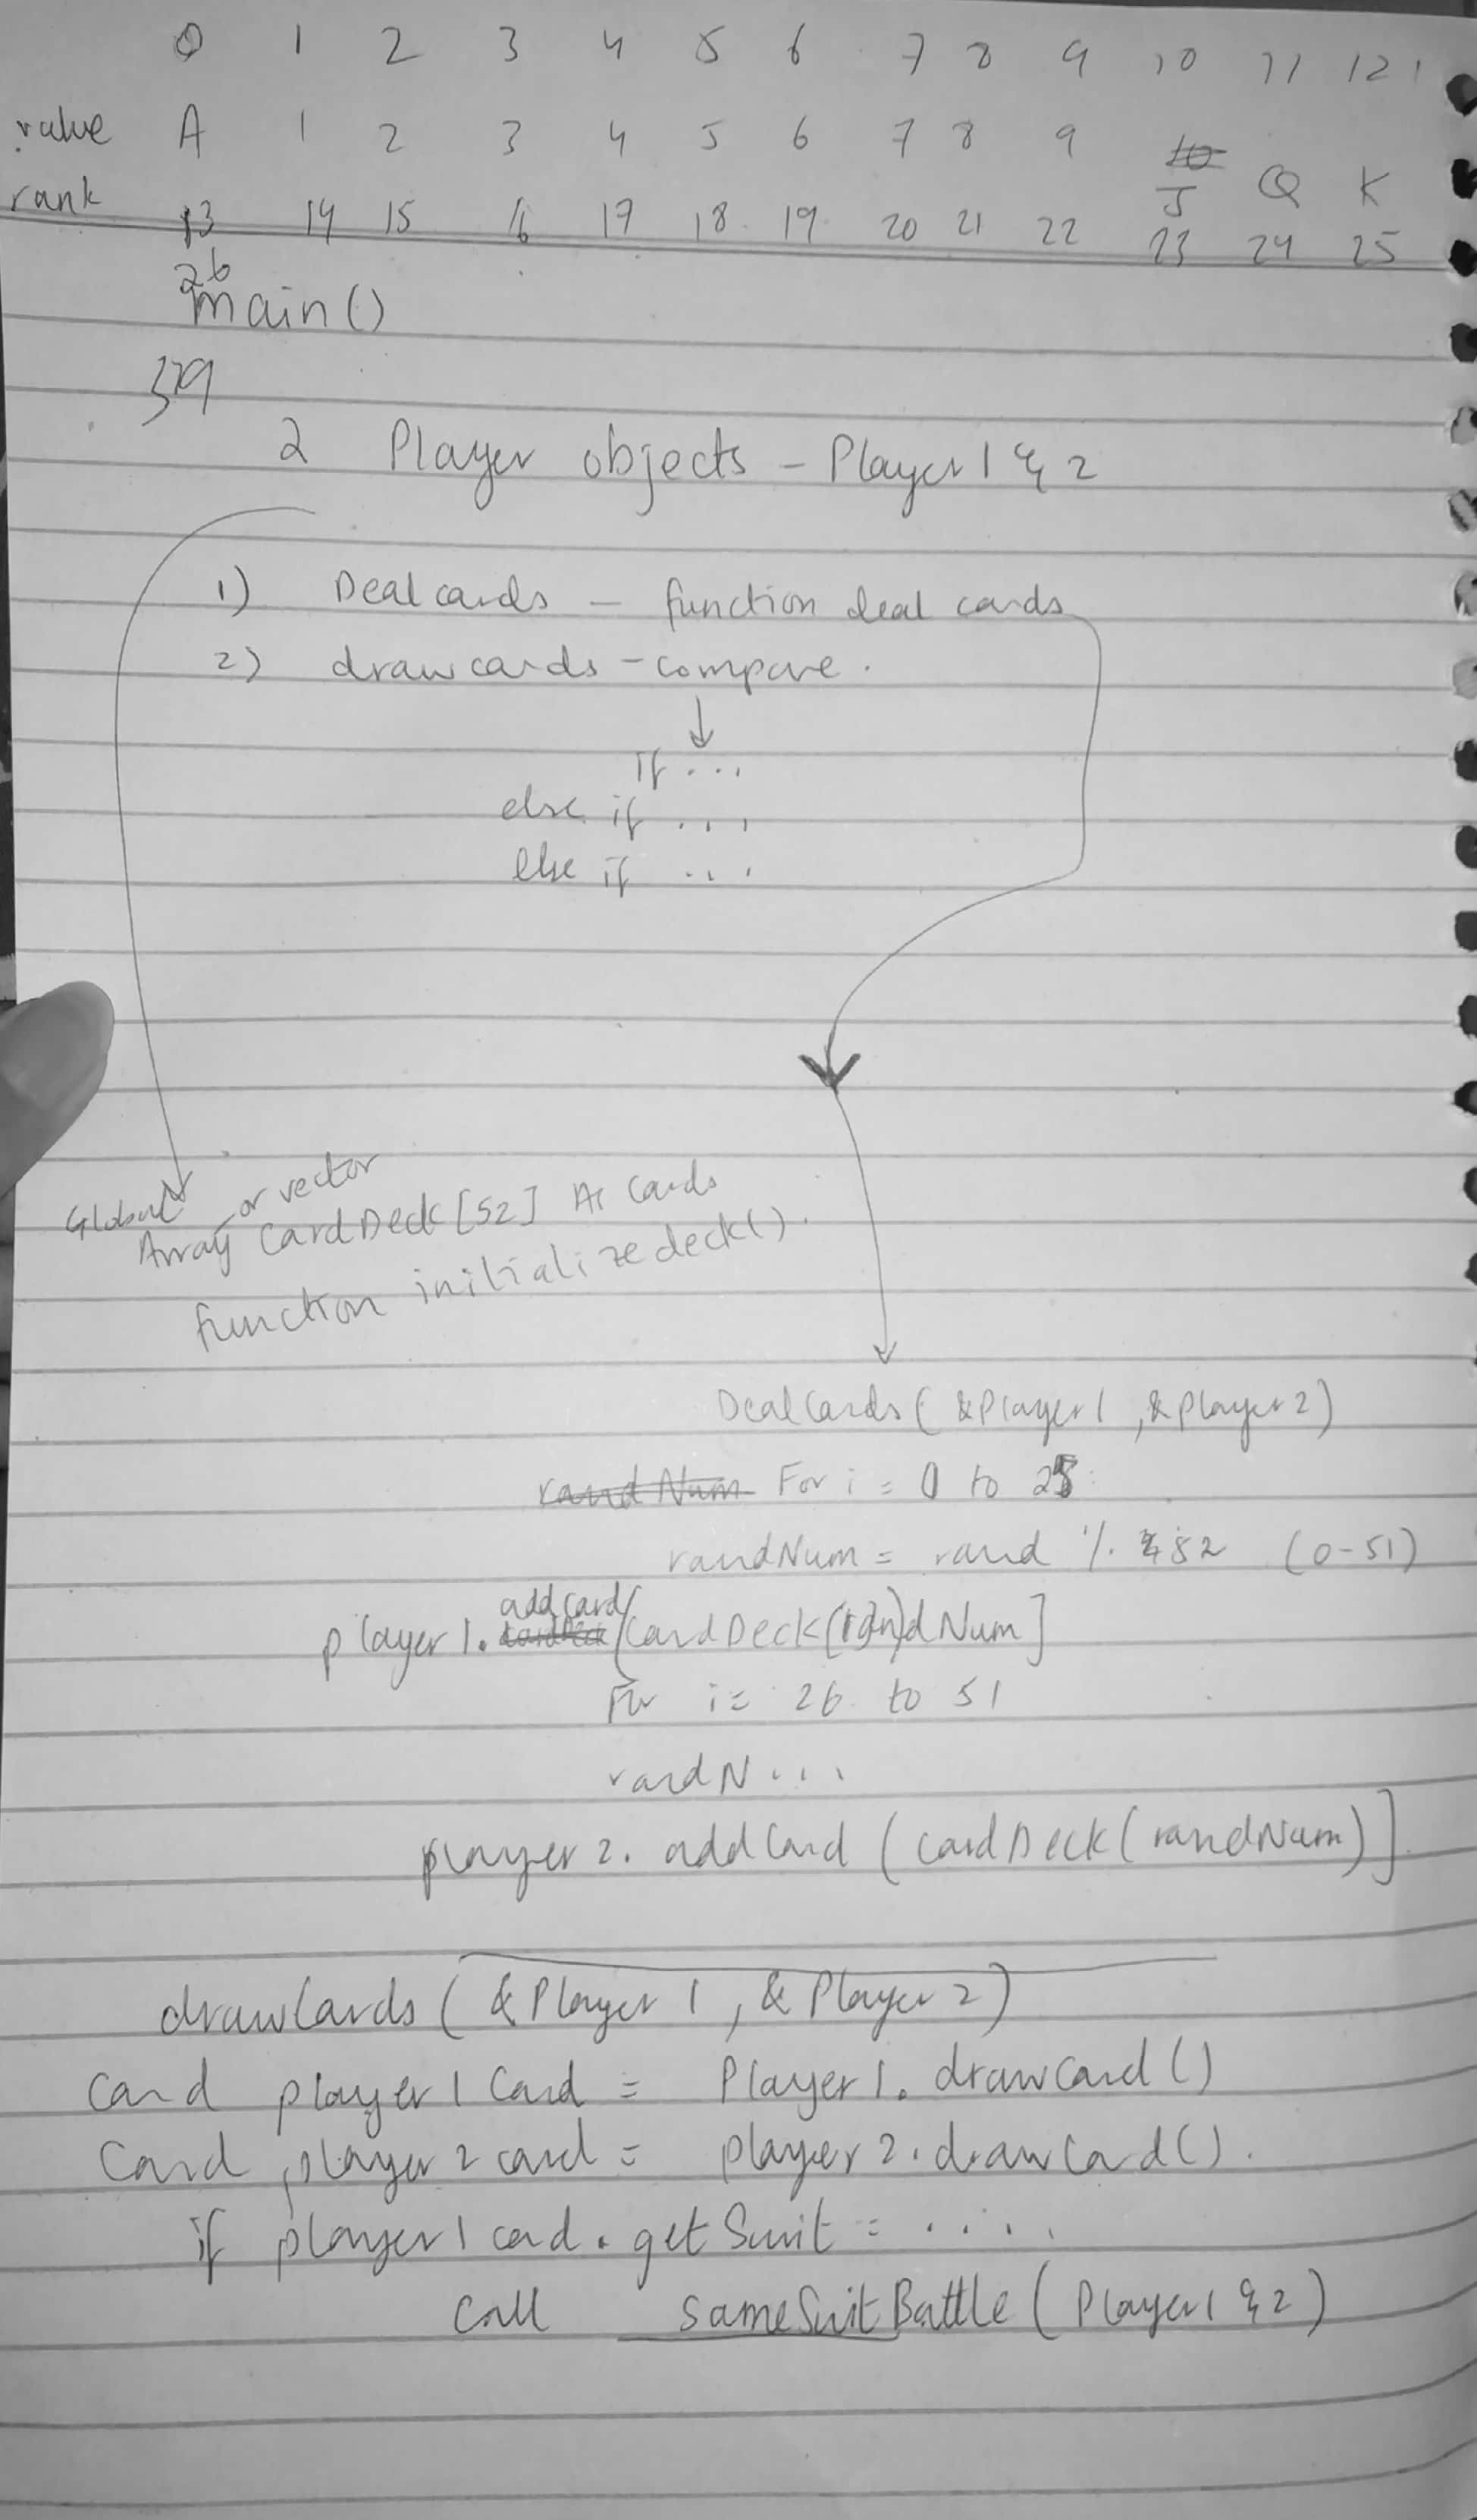 0 1 2 3 4 5 6 7 8 9 10 11 12
value A 1 2 3 4 5 6 7 8 9 10 J Q K
rank 13 14 15 16 17 18 19 20 21 22 23 24 25
26
main()
39
2 Player objects - Player 1 & 2
1) Deal cards - function deal cards
2) draw cards - compare.
↓
if ...
else if ...
else if ...
Global
Array or vector CardDeck[52] As Cards
function initializedeck().
DealCards( &Player1, &Player2)
randNum For i = 0 to 25
randNum = rand % 52 (0-51)
player1. cardDeck addcard(CardDeck(randNum]
For i= 26 to 51
randN...
player2. addCard (cardDeck(randNum)]
drawCards( &Player 1, & Player 2)
Card player1Card = Player1. drawCard()
Card player2card = player2.drawCard().
if player1card.getSuit = ....
call sameSuitBattle( Player1 & 2)